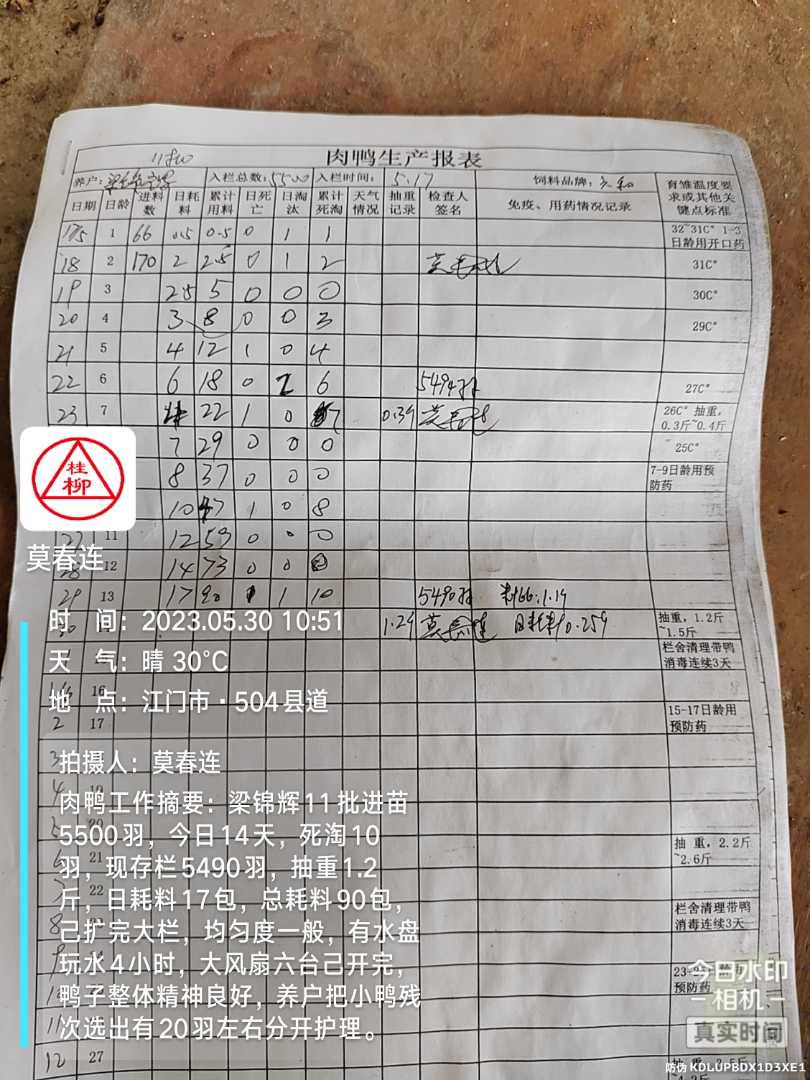 肉鸭生产报表
养户: 入栏总数:5500 入栏时间: 5.17 饲料品牌: 育雏温度要求或其他关键点标准
日期 日龄 进料数 日耗料 累计用料 日死亡 日淘汰 累计死淘 天气情况 抽重记录 检查人签名 免疫、用药情况记录
1 66 0.5 0.5 0 1 1 32~31C° 1-3日龄用开口药
18 2 170 2 2.5 0 1 2 31C°
19 3 2.5 5 0 0 0 30C°
20 4 3 8 0 0 3 29C°
21 5 4 12 1 0 4
22 6 6 18 0 6 5494羽 27C°
23 7 22 1 0 7 26C° 抽重,0.3斤~0.4斤
7 29 0 0 0 25C°
8 37 0 0 0 7-9日龄用预防药
10 47 1 0 8
11 12 59 0 0 0
12 14 73 0 0
29 13 17 90 1 10 5490羽
抽重,1.2斤~1.5斤
栏舍清理带鸭消毒连续3天
16
2 17 15-17日龄用预防药
21 抽重,2.2斤~2.6斤
22
栏舍清理带鸭消毒连续3天
预防药
12 27
桂柳
莫春连
时 间: 2023.05.30 10:51
天 气: 晴 30°C
地 点: 江门市·504县道
拍摄人: 莫春连
肉鸭工作摘要: 梁锦辉11批进苗
5500羽,今日14天,死淘10
羽,现存栏5490羽,抽重1.2
斤,日耗料17包,总耗料90包,
己扩完大栏,均匀度一般,有水盘
玩水4小时,大风扇六台己开完,
鸭子整体精神良好,养户把小鸭残
次选出有20羽左右分开护理。
今日水印
相机
真实时间
防伪 KDLUPBDX1D3XE1